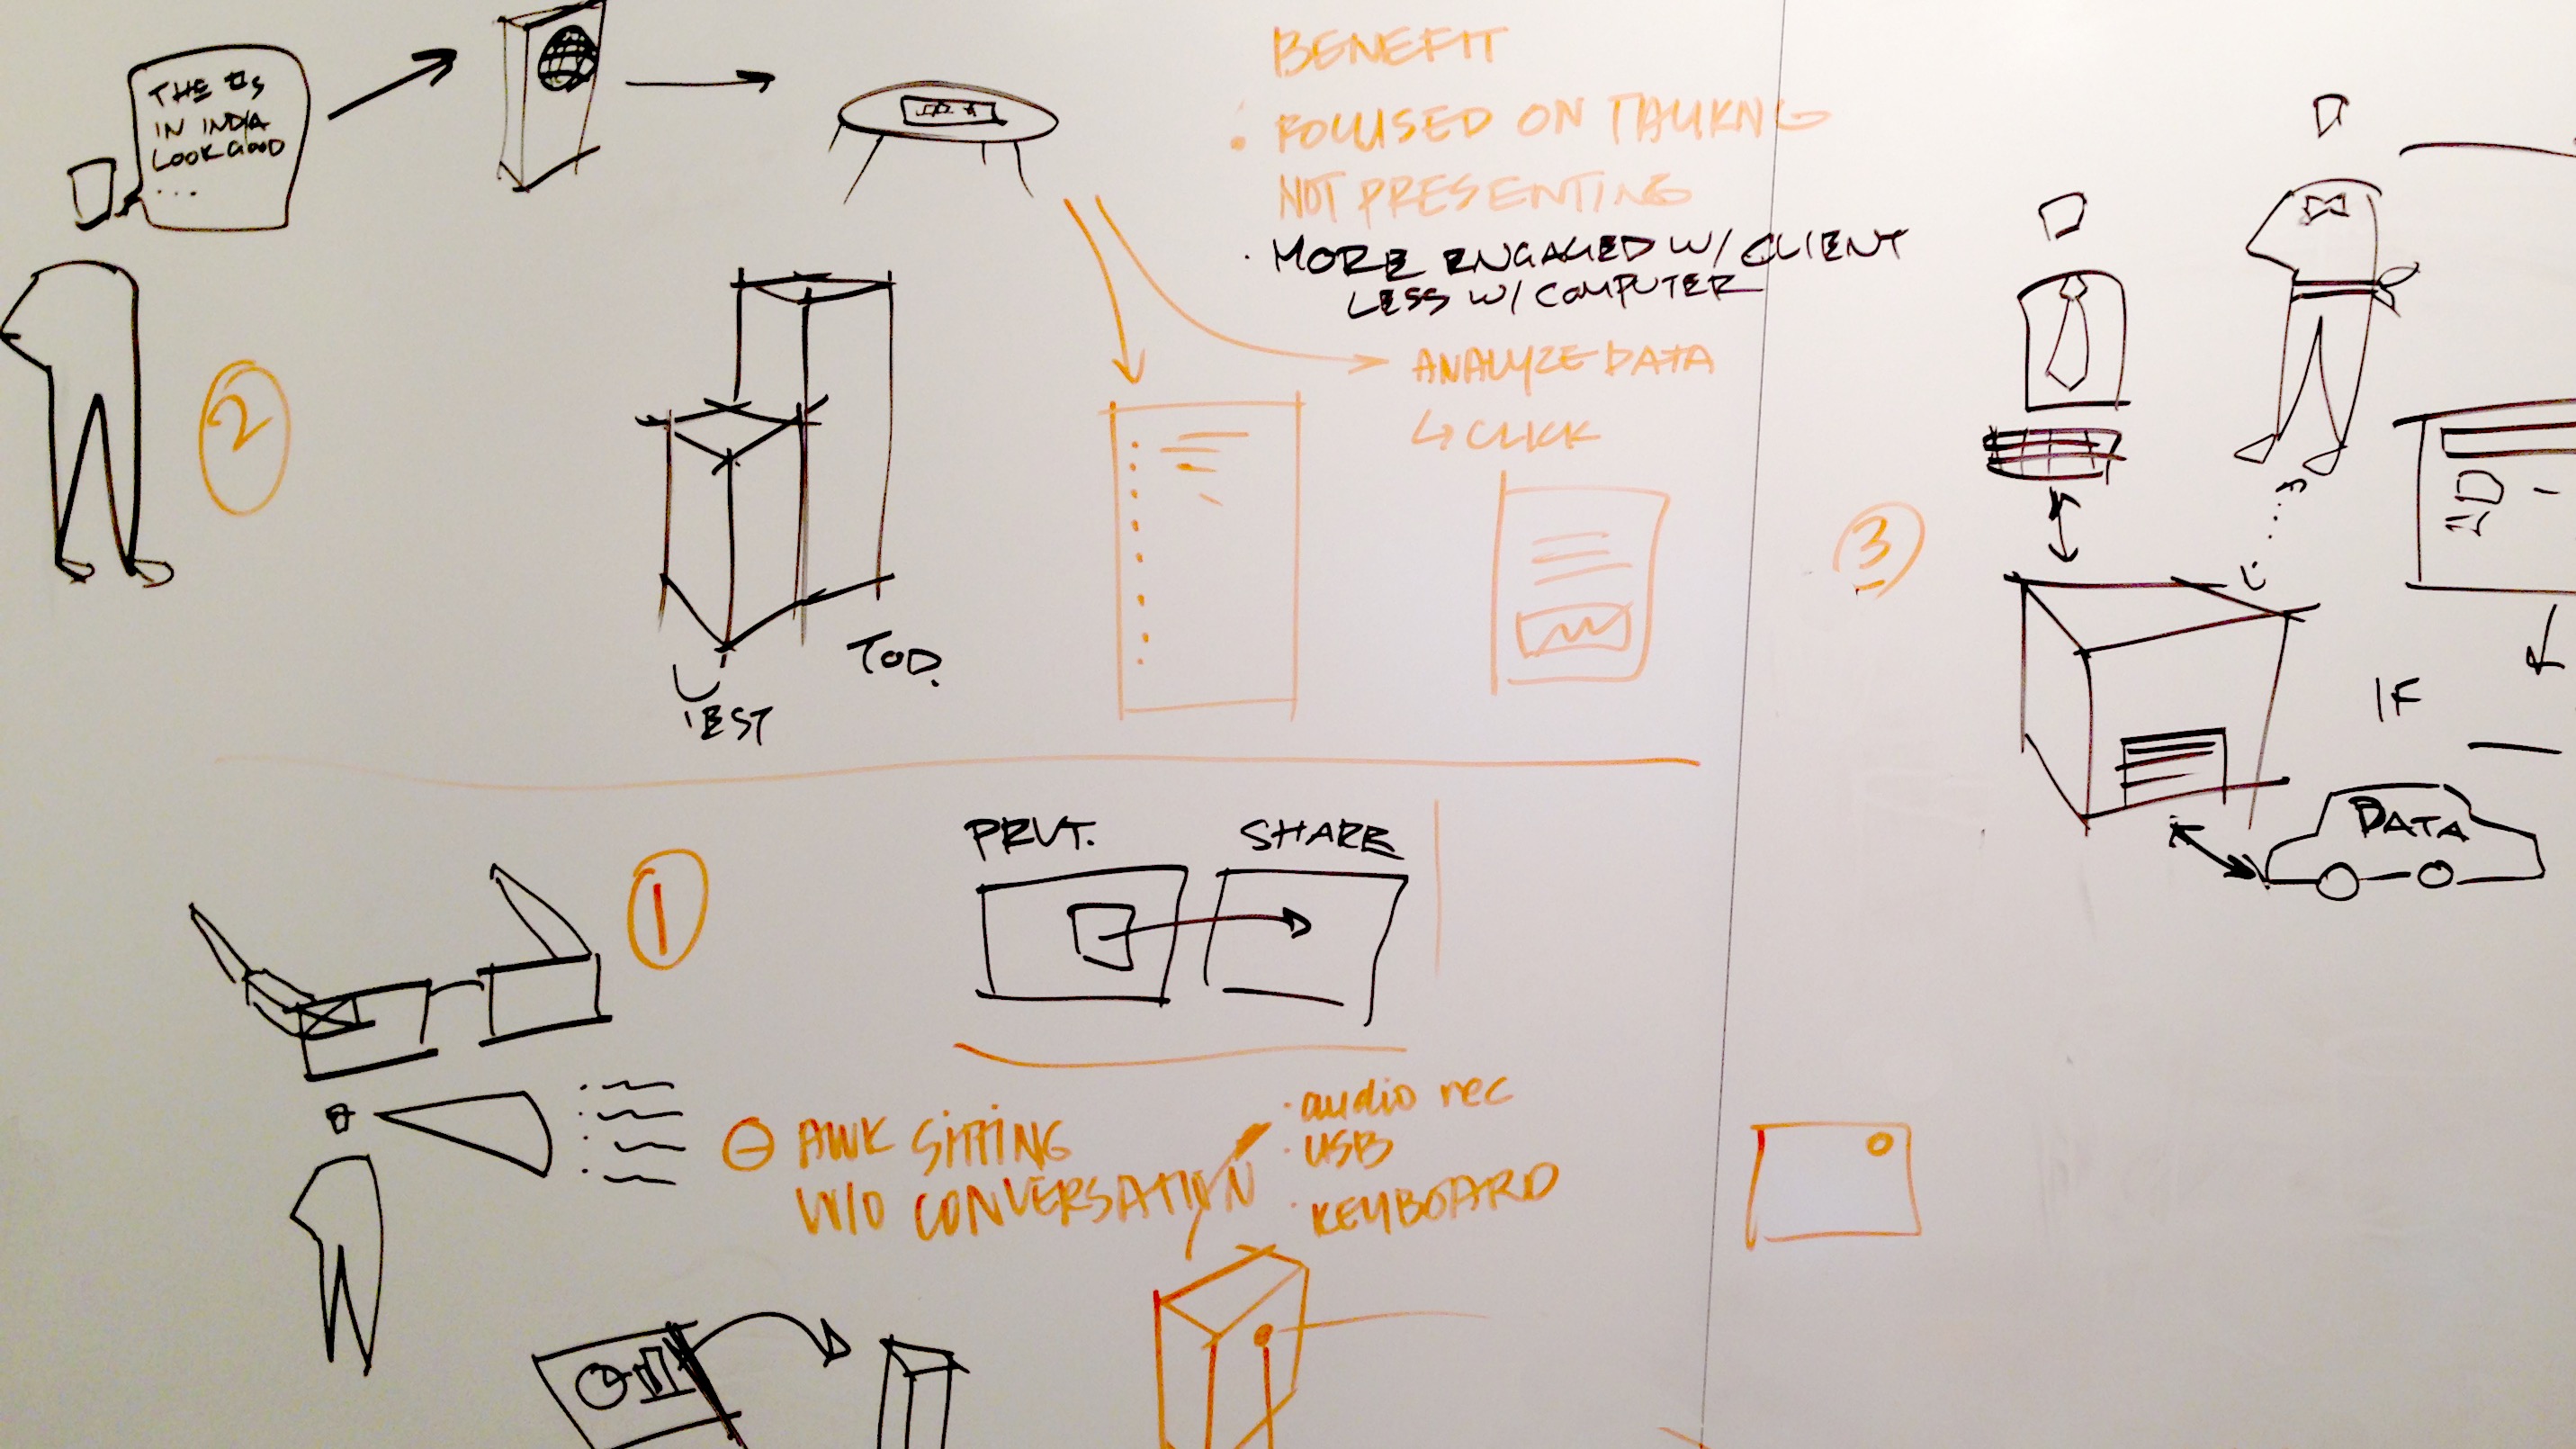 THE #s
IN INDIA
LOOK GOOD
...
BENEFIT
• FOCUSED ON TALKING
NOT PRESENTING
• MORE ENGAGED W/ CLIENT
LESS W/ COMPUTER
ANALYZE DATA
↳ CLICK
2
TOD.
3
IF
DATA
1
PRVT.
SHARE
⊖ AWK SITTING
W/O CONVERSATION
• audio rec
• USB
• KEYBOARD